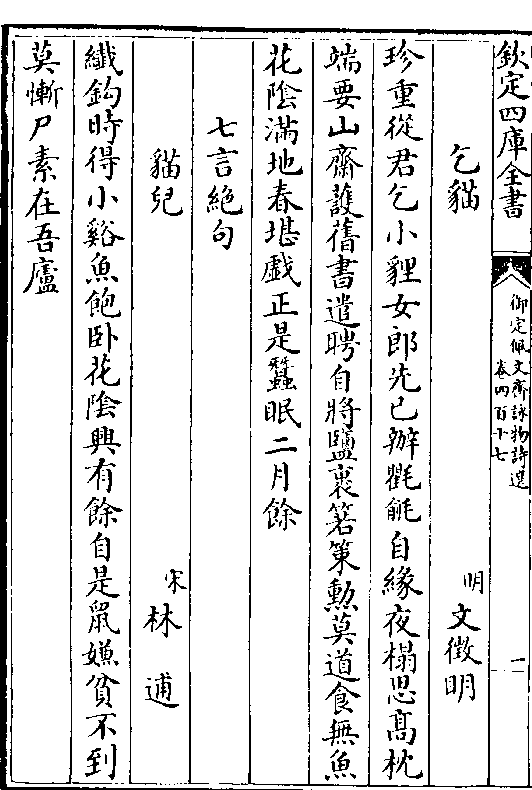 欽定四庫全書
御定佩文齋詠物詩選
卷四百十七
二
乞貓
明 文徵明
珍重從君乞小貍女郎先已辦氍毹自緣夜榻思高枕
端要山齋護舊書遣聘自將鹽裹箬策勲莫道食無魚
花陰滿地春堪戲正是蠶眠二月餘
七言絕句
貓兒
宋 林逋
纖鈎時得小谿魚飽卧花陰興有餘自是鼠嫌貧不到
莫慚尸素在吾廬